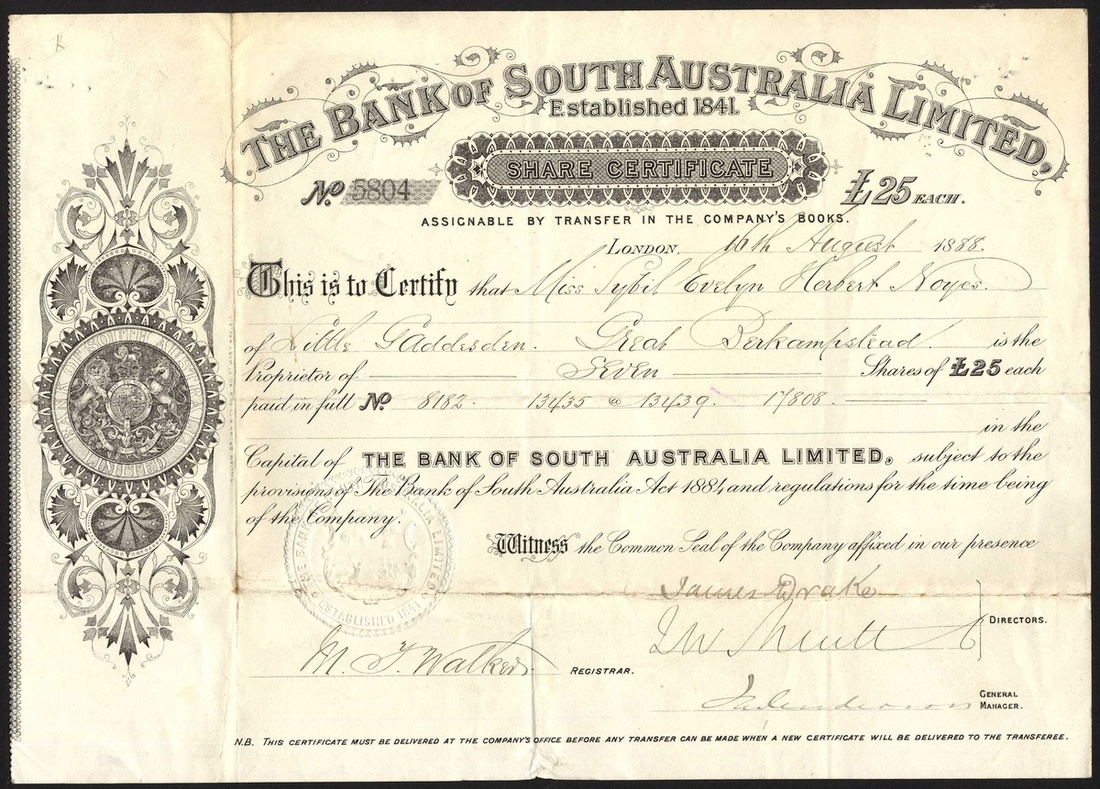 K
THE BANK OF SOUTH AUSTRALIA LIMITED,
Established 1841.
SHARE CERTIFICATE
No 5804
£25 EACH.
ASSIGNABLE BY TRANSFER IN THE COMPANY'S BOOKS.
LONDON, 16th August 1888.
This is to Certify that Miss Sybil Evelyn Herbert Noyes.
of Little Gaddesden. Great Berkampstead. is the
Proprietor of Seven Shares of £25 each
paid in full No 8182. 13435 to 13439. 17808.
in the
Capital of THE BANK OF SOUTH AUSTRALIA LIMITED. subject to the
provisions of The Bank of South Australia Act 1884 and regulations for the time being
of the Company.
Witness the Common Seal of the Company affixed in our presence
THE BANK OF SOUTH AUSTRALIA LIMITED
ESTABLISHED 1841
James Drake
DIRECTORS.
M. T. Walker. REGISTRAR.
GENERAL
MANAGER.
N.B. THIS CERTIFICATE MUST BE DELIVERED AT THE COMPANY'S OFFICE BEFORE ANY TRANSFER CAN BE MADE WHEN A NEW CERTIFICATE WILL BE DELIVERED TO THE TRANSFEREE.
BANK OF SOUTH AUSTRALIA
LIMITED